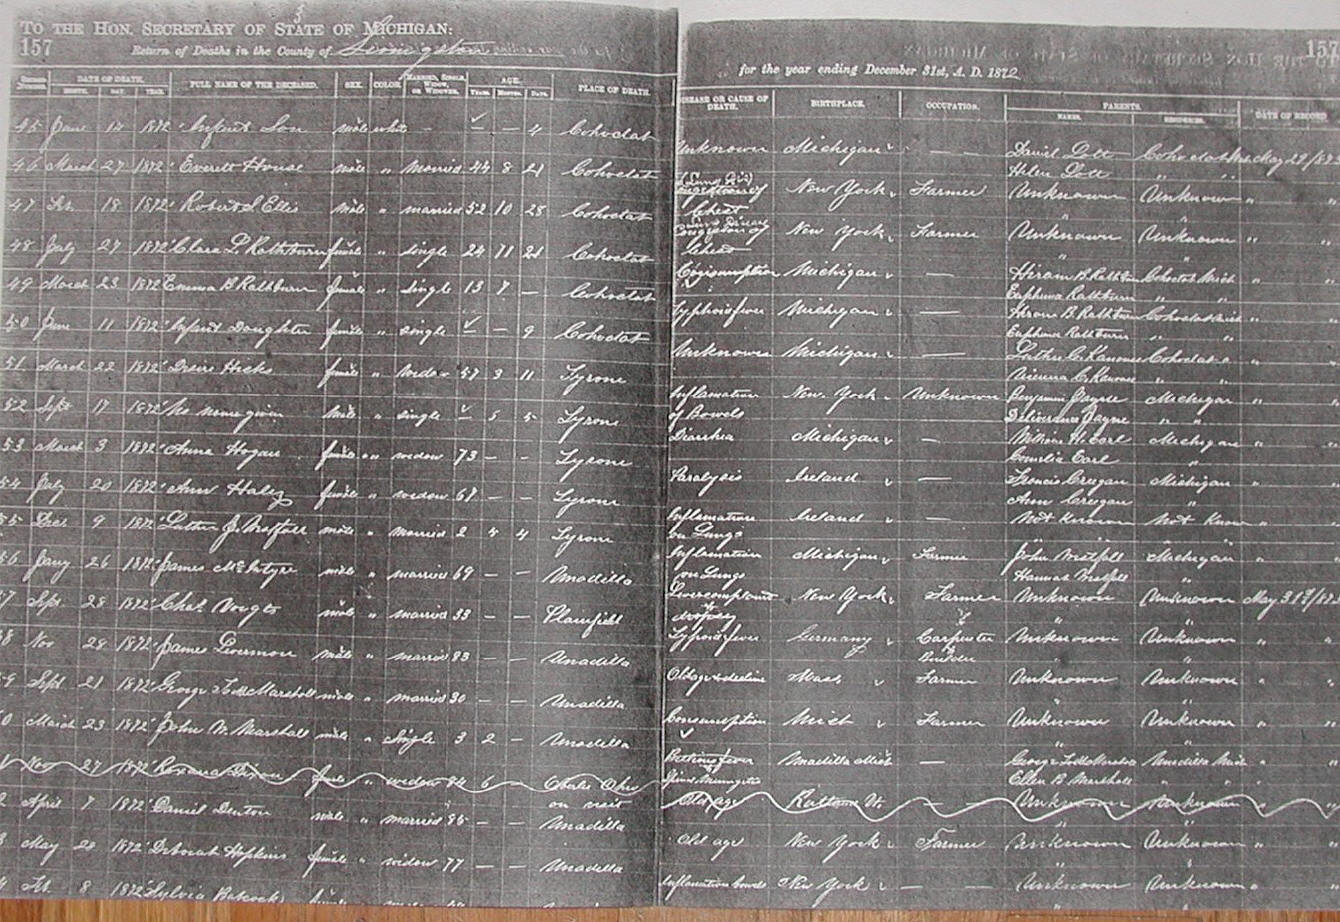 TO THE HON. SECRETARY OF STATE OF MICHIGAN:
157
Return of Deaths in the County of Livingston
for the year ending December 31st, A. D. 1872
DATE OF DEATH. FULL NAME OF THE DECEASED. SEX. COLOR. MARRIED, SINGLE, WIDOW, OR WIDOWER. AGE. PLACE OF DEATH. DISEASE OR CAUSE OF DEATH. BIRTHPLACE. OCCUPATION. PARENTS. DATE OF RECORD
MONTH. DAY. YEAR. YEARS. MONTHS. DAYS. NAMES. RESIDENCE.
45 June 14 1872 Infant Son male white - - - 4 Cohoctat Unknown Michigan - Daniel Lott
Helen Lott
46 March 27 1872 Everett House male " married 44 8 21 Cohoctat Congestion of Chest New York Farmer Unknown Unknown "
47 18 1872 Robert S Ellis male " married 52 10 28 Cohoctat Congestion of Chest New York Farmer Unknown Unknown "
48 July 27 1872 Clara L Rathburn female " single 24 11 21 Cohoctat Consumption Michigan - Hiram B Rathburn Cohoctat Mich "
Euphema Rathburn " "
49 March 23 1872 Emma B Rathburn female " single 13 7 - Cohoctat Typhoid fever Michigan - Hiram B Rathburn Cohoctat Mich "
Euphema Rathburn " "
50 June 11 1872 Infant Daughter female " single - - 9 Cohoctat Unknown Michigan - Luther C Cohoctat "
51 March 22 1872 Hicks female " 57 3 11 Tyrone Inflamation of Bowels New York Unknown Benjamin Jayne Michigan "
Deliverance Jayne " "
52 Sept 17 1872 No name given Male " single - 5 5 Tyrone Diarrhea Michigan - William H Earl Michigan "
Cornelia Earl "
53 March 3 1872 Anna Hogan female " widow 73 - - Tyrone Paralysis Ireland - Francis Creegan Michigan "
Ann Creegan "
54 July 20 1872 Ann Haley female " widow 67 - - Tyrone Inflamation on Lungs Ireland - Not Known Not Known "
55 Dec 9 1872 Luther J Westfall male " married 2 4 4 Tyrone Inflamation on Lungs Michigan Farmer John Westfall Michigan "
Hannah Westfall "
56 Jany 26 1872 James McIntyre male " married 69 - - Unadilla Livercomplaint & dropsey New York Farmer Unknown Unknown
57 Sept 28 1872 Chas. Voigts male " married 33 - - Plainfield Typhoid fever Germany Carpenter & Builder Unknown Unknown "
58 Nov 28 1872 James Livermore male " married 83 - - Unadilla Old age & decline Mass Farmer Unknown Unknown "
59 Sept 21 1872 George Marshall male " married 30 - - Unadilla Consumption Mich Farmer Unknown Unknown "
60 March 23 1872 John W. Marshall male " Single 3 2 - Unadilla Unadilla Mich George Marshall Unadilla Mich "
Ellen B. Marshall
Nov 27 1872 Roxana Dixon " widow 84 6 - Ohio on visit Old age Rutland Vt. - Unknown Unknown "
April 7 1872 Daniel Denton male " married 85 - - Unadilla Old age New York Farmer Unknown Unknown "
May 22 1872 Deborah Hopkins female " widow 77 - - Unadilla Inflamation bowels New York - Unknown Unknown "
8 1872 Sylvia Babcock